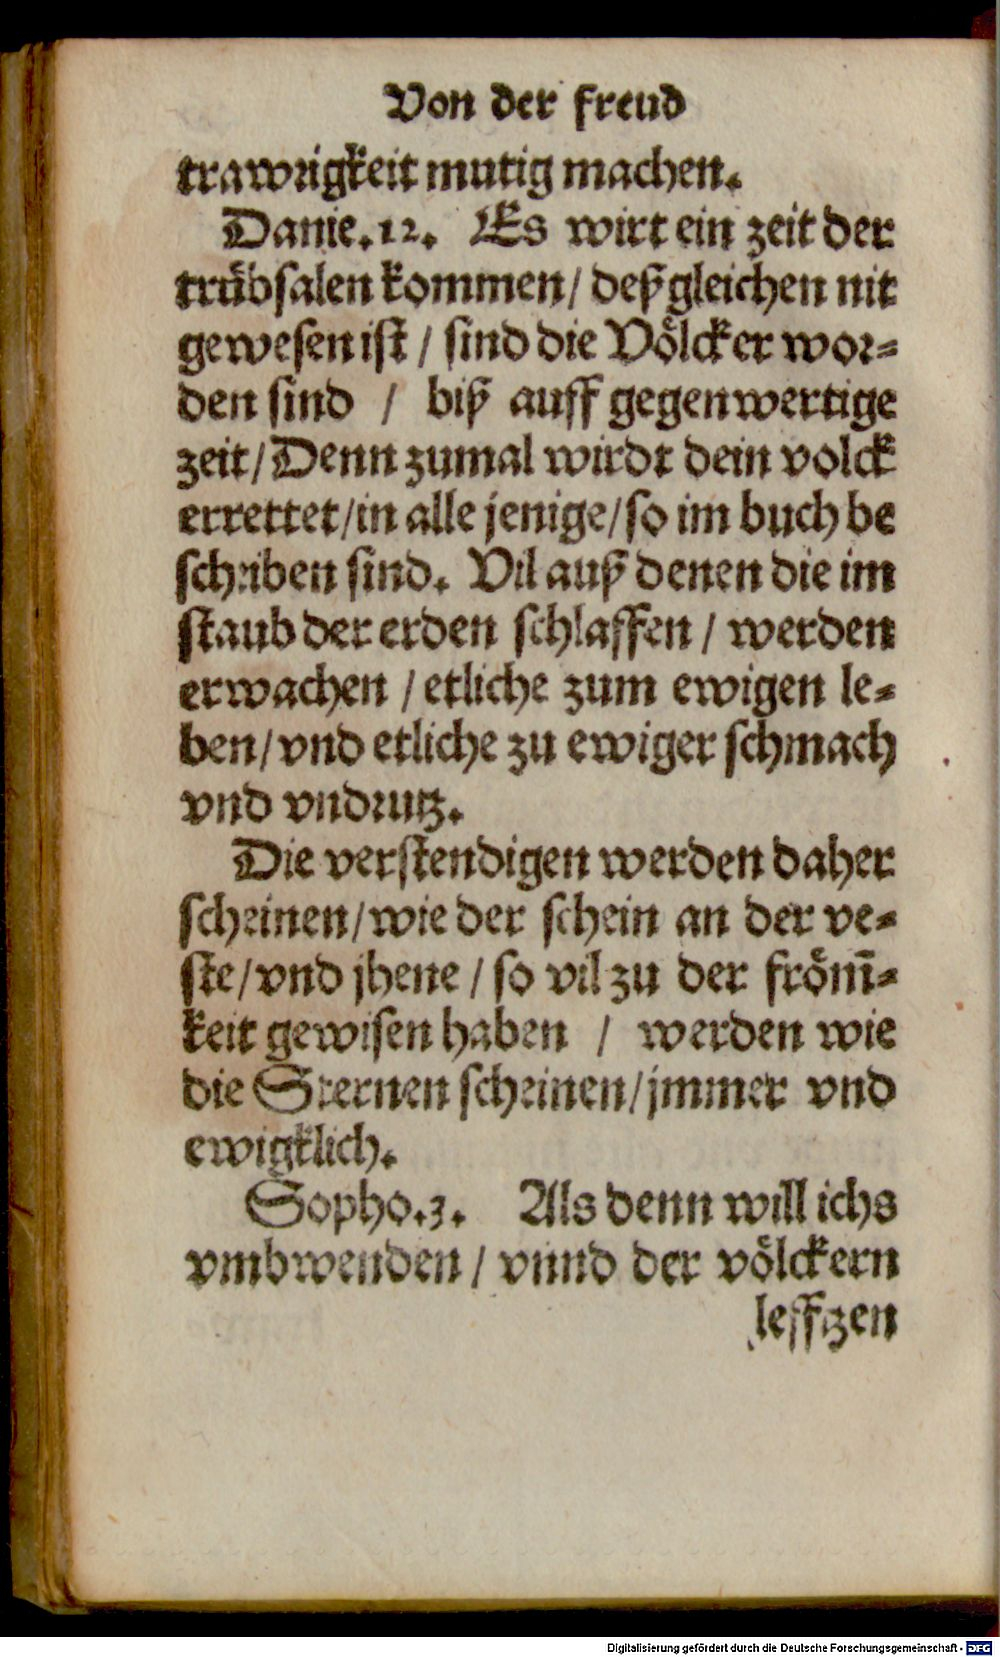 Von der freud
trawrigkeit mutig machen.
Danie.12. Es wirt ein zeit der
trübsalen kommen/ deßgleichen nit
gewesen ist / sind die Völcker wor=
den sind / biß auff gegenwertige
zeit/ Denn zumal wirdt dein volck
errettet/in alle jenige/so im buch be
schriben sind. Vil auß denen die im
staub der erden schlaffen / werden
erwachen / etliche zum ewigen le=
ben/ vnd etliche zu ewiger schmach
vnd vndrutz.
Die verstendigen werden daher
scheinen/ wie der schein an der ve=
ste/ vnd jhene / so vil zu der fröm̃=
keit gewisen haben / werden wie
die Sternen scheinen/ jmmer vnd
ewigklich.
Sopho.3. Als denn will ichs
vmbwenden / vnnd der völckern
leffzen
Digitalisierung gefördert durch die Deutsche Forschungsgemeinschaft - DFG